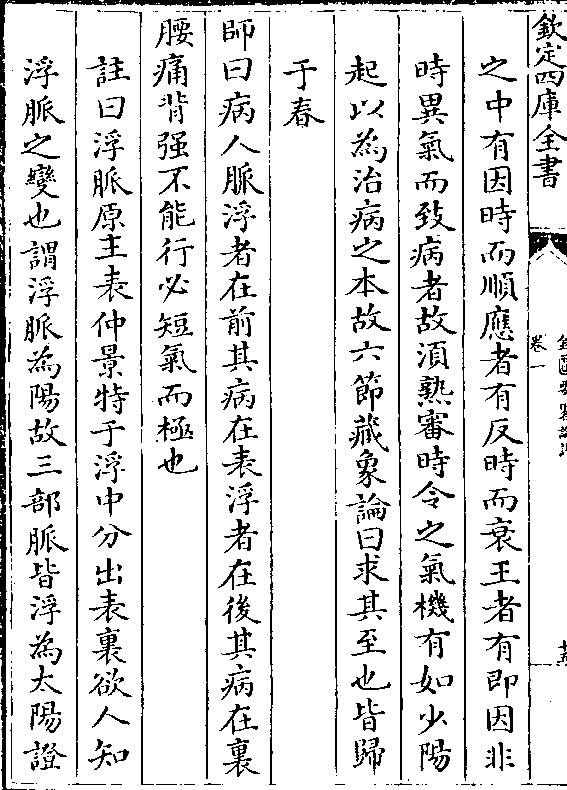 欽定四庫全書
卷一
之中有因時而順應者有反時而衰王者有即因非
時異氣而致病者故湏熟審時令之氣機有如少陽
起以為治病之本故六節藏象論曰求其至也皆歸
于春
師曰病人脈浮者在前其病在表浮者在後其病在裏
腰痛背强不能行必短氣而極也
註曰浮脈原主表仲景特于浮中分出表裏欲人知
浮脈之變也謂浮脈為陽故三部脈皆浮為太陽證